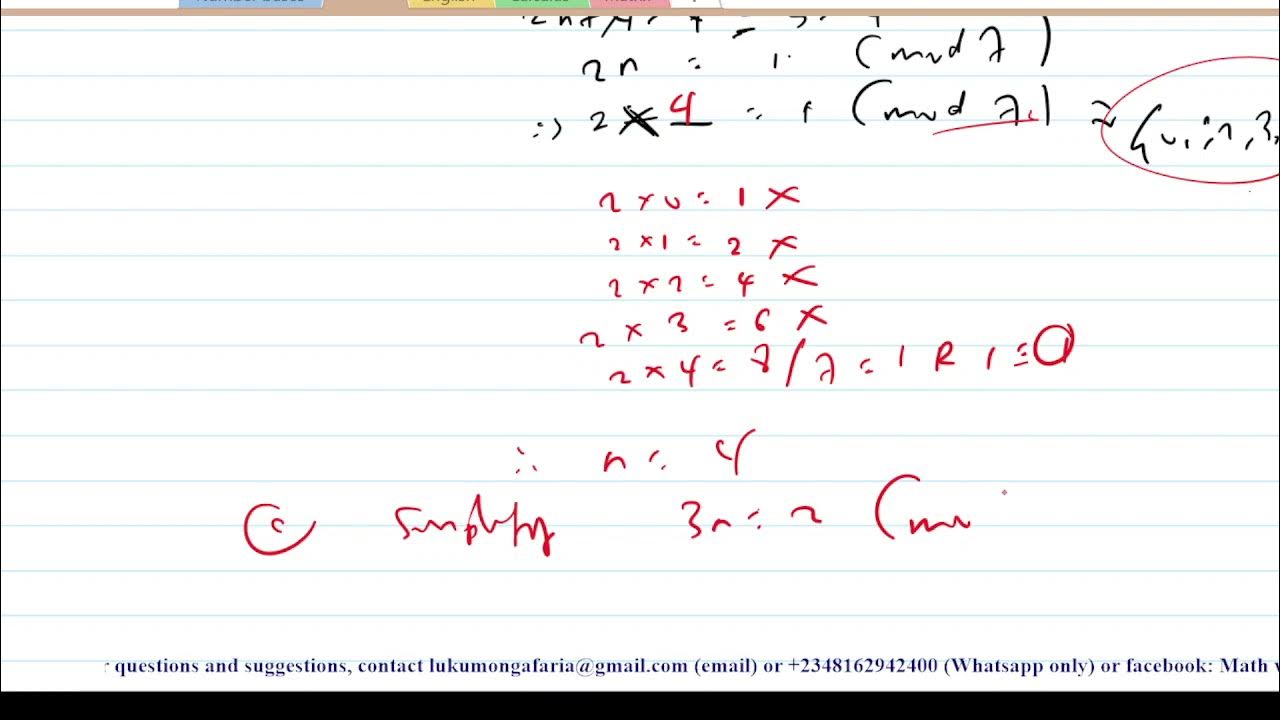 Number bases English Calculus Matrix +
2n = 1 (mod 7)
=> 2 × 4 = 1 (mod 7)
2 × 0 = 1 ×
2 × 1 = 2 ×
2 × 2 = 4 ×
2 × 3 = 6 ×
2 × 4 = 8/7 = 1 R 1 =
∴ n = 4
(c) Simplify 3n = 2 (mo
questions and suggestions, contact lukumongafaria@gmail.com (email) or +2348162942400 (Whatsapp only) or facebook: Math